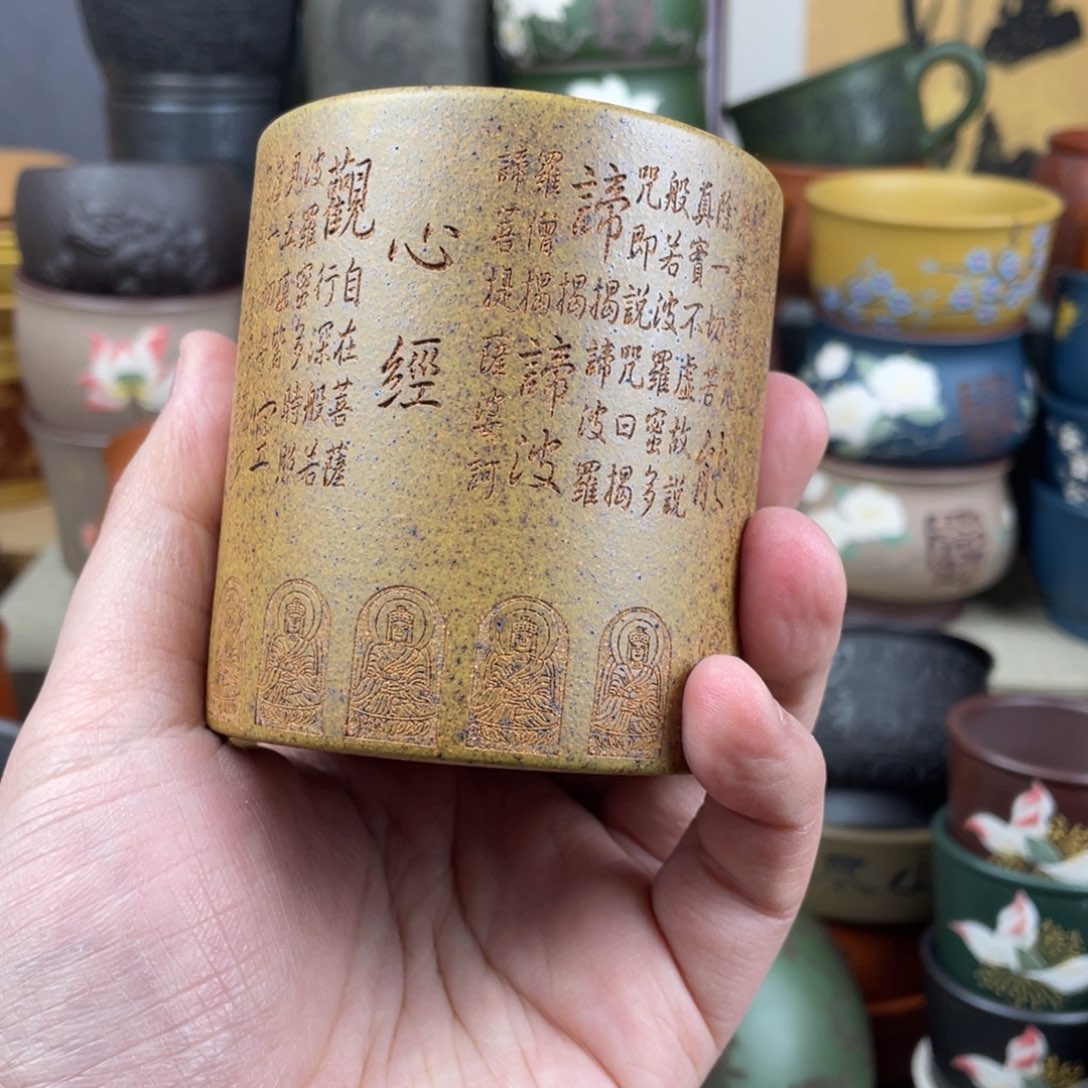 心經
觀自在菩薩
行深般若
波羅蜜多時照
見五蘊皆
能
除一切苦
真實不虛故說
般若波羅蜜多
咒即說咒曰揭
諦揭諦波羅
揭諦波
羅僧揭
諦菩提薩婆訶